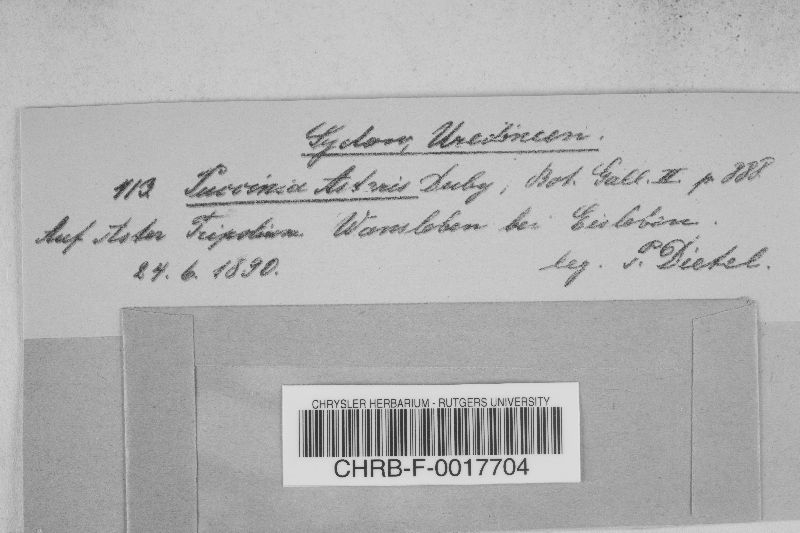 Sydow, Uredineen.
113 Puccinia Asteris Duby, Bot. Gall. II p. 888
Auf Aster Tripolium Wansleben bei Eisleben.
24. 6. 1890. leg. P. Dietel.
CHRYSLER HERBARIUM - RUTGERS UNIVERSITY
CHRB-F-0017704